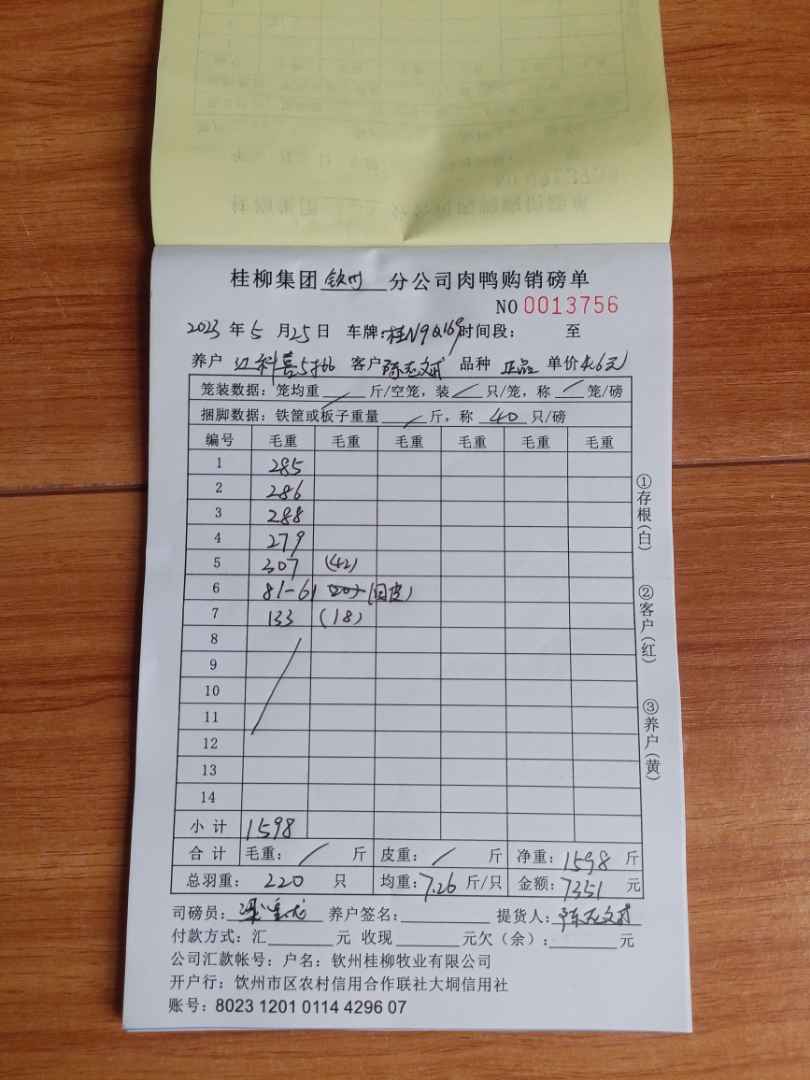 桂柳集团 钦州 分公司肉鸭购销磅单
NO 0013756
2023 年 5 月 25 日 车牌: 桂N9Q169 时间段: 至
养户 客户 陈志文 品种 正品 单价 4.6元
笼装数据: 笼均重 / 斤/空笼, 装 / 只/笼, 称 / 笼/磅
捆脚数据: 铁筐或板子重量 / 斤, 称 40 只/磅
编号 毛重 毛重 毛重 毛重 毛重 毛重
1 285
2 286
3 288
4 279
5 307 (42)
6 81-61 (回皮)
7 133 (18)
8
9
10
11
12
13
14
小计 1598
合计 毛重: / 斤 皮重: / 斤 净重: 1598 斤
总羽重: 220 只 均重: 7.26 斤/只 金额: 7351 元
司磅员: 养户签名: 提货人: 陈志文
付款方式: 汇 元 收现 元欠(余): 元
公司汇款帐号: 户名: 钦州桂柳牧业有限公司
开户行: 饮州市区农村信用合作联社大垌信用社
账号: 8023 1201 0114 4296 07
①存根(白)
②客户(红)
③养户(黄)